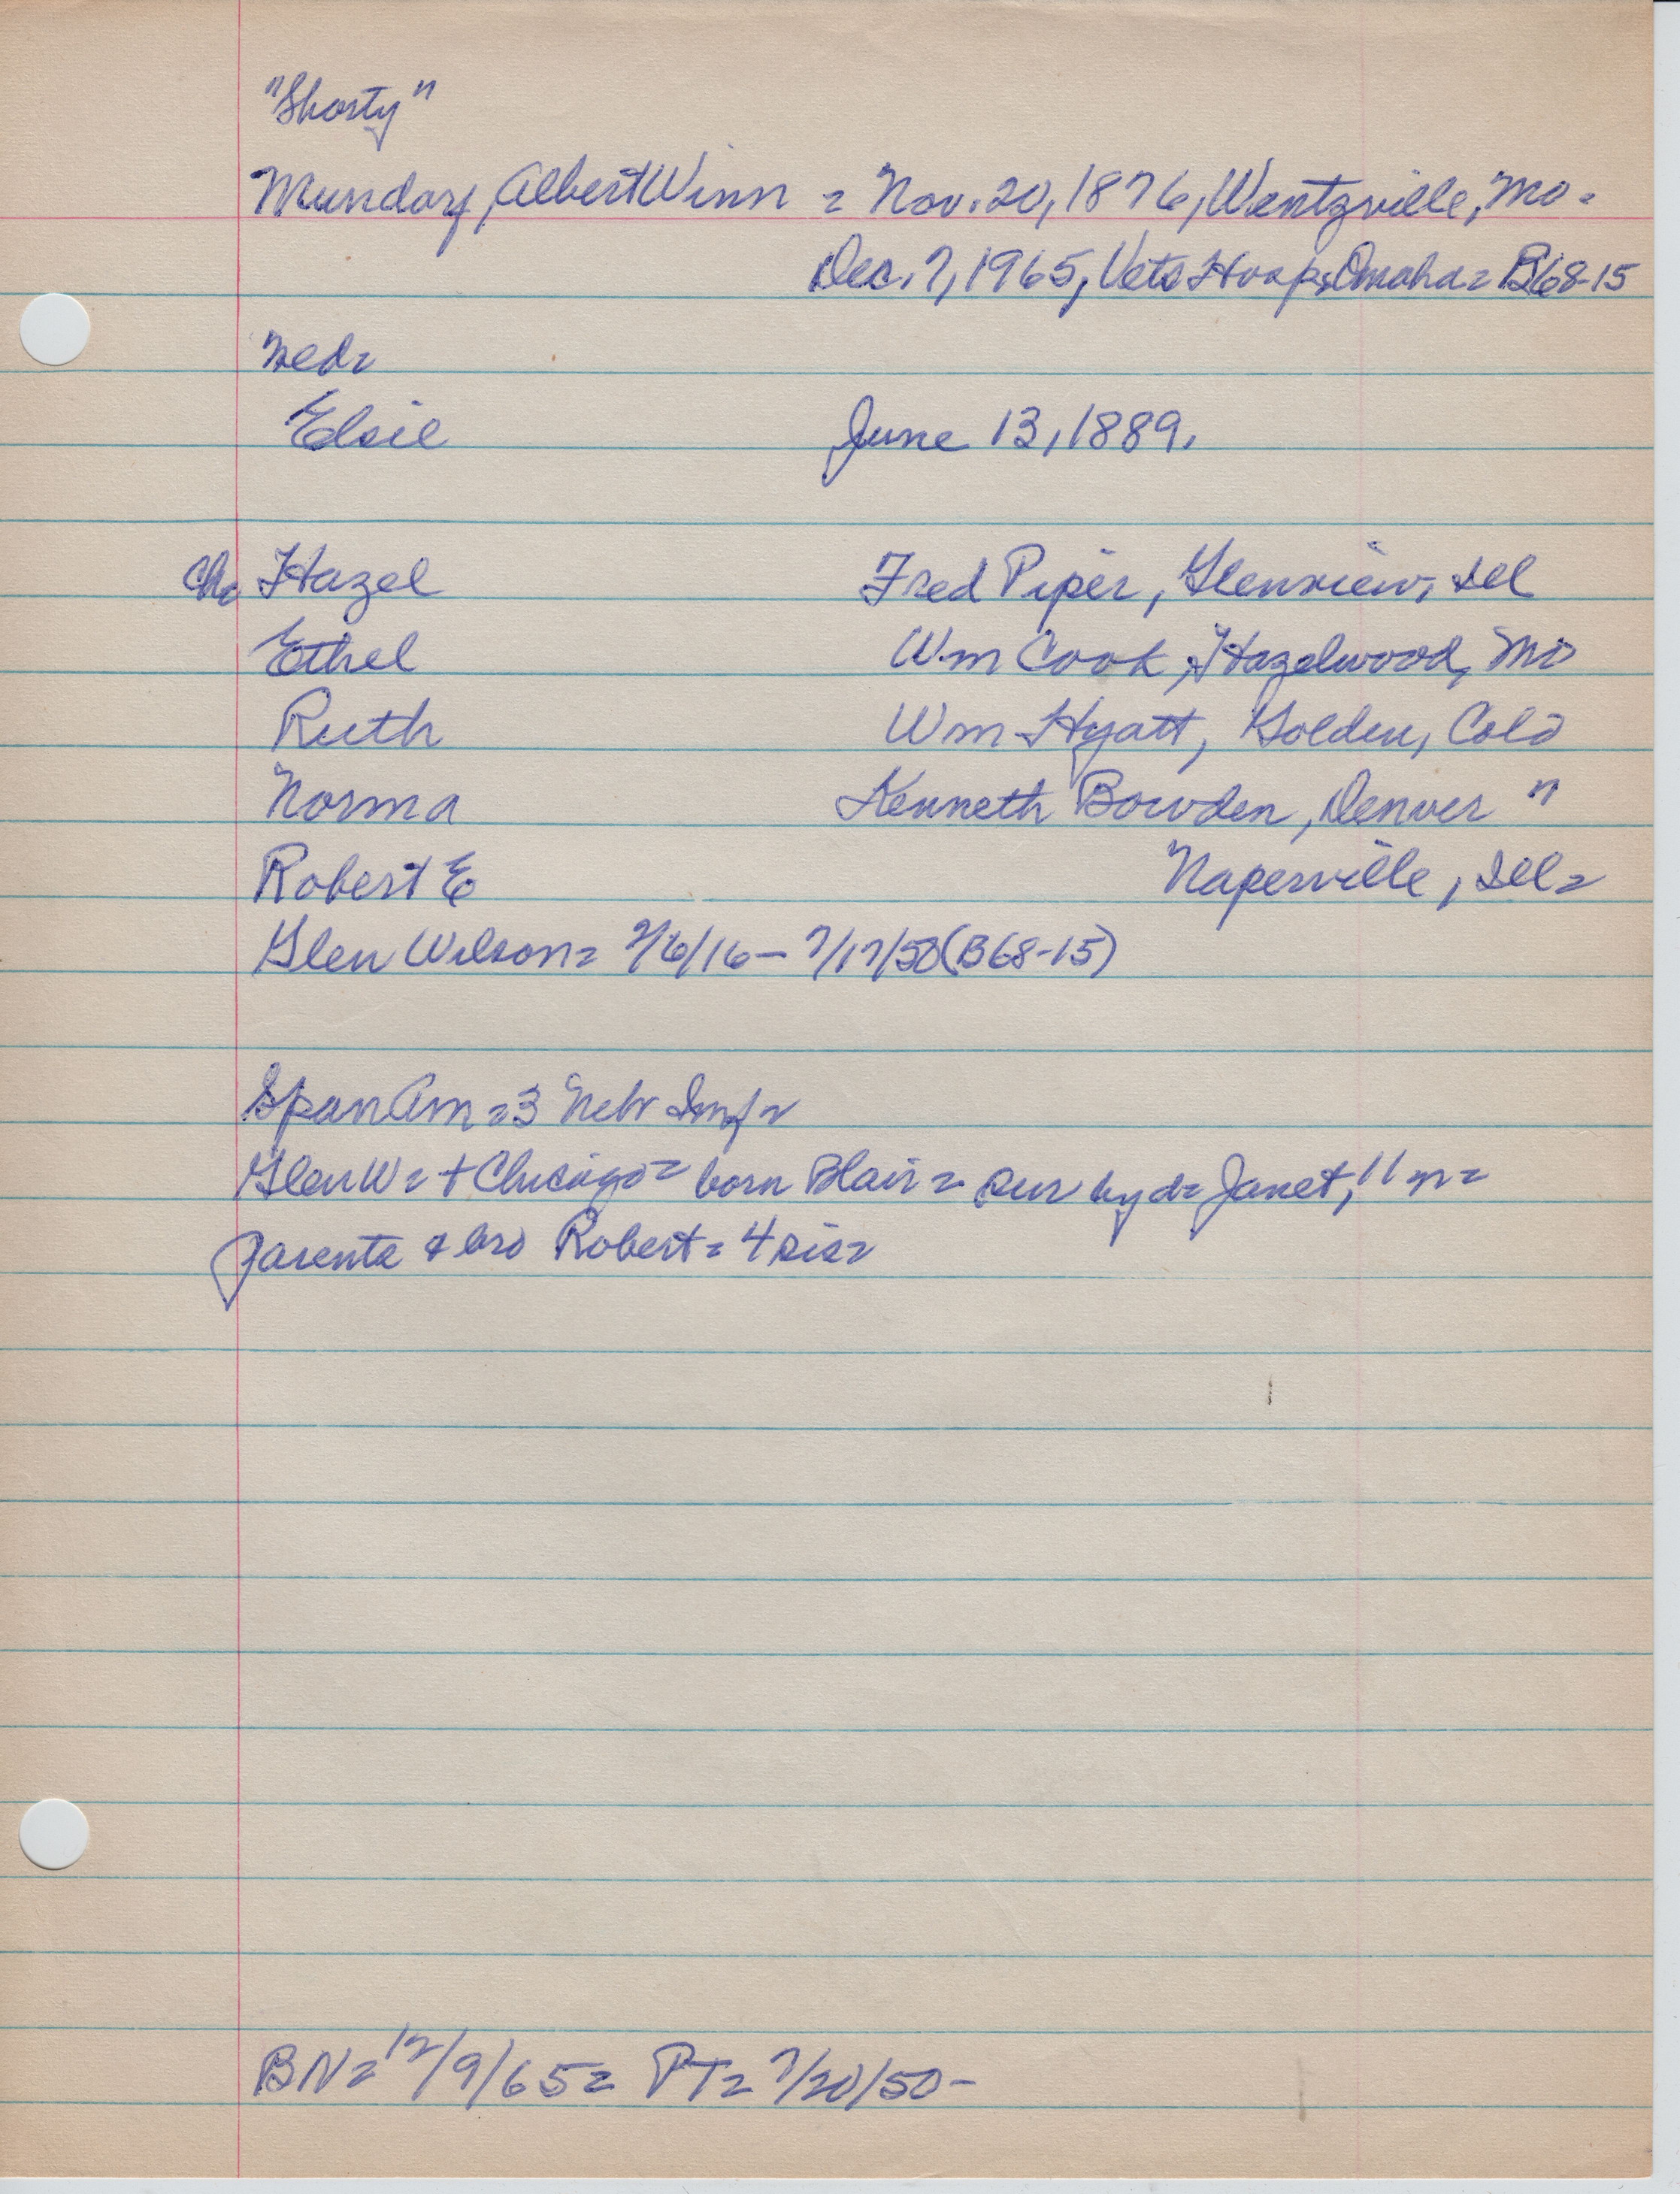 "Shorty"
Munday, Albert Winn = Nov. 20, 1876, Wentzville, Mo-
Dec. 7, 1965, Vets Hosp, Omaha= B68-15
Wed=
Elsie June 13, 1889.
Ch= Hazel Fred Piper, Glenview, Ill
Ethel Wm Cook, Hazelwood, Mo
Ruth Wm Hyatt, Golden, Colo
Norma Kenneth Bowden, Denver "
Robert E Naperville, Ill=
Glen Wilson= 7/6/16 - 7/17/50 (B68-15)
Span Am=3 Nebr Inf=
Glen W= + Chicago= born Blair= sur by d= Janet, 11 yr=
parents & bro Robert= 4 sis=
BN= 12/9/65= PT= 7/20/50-